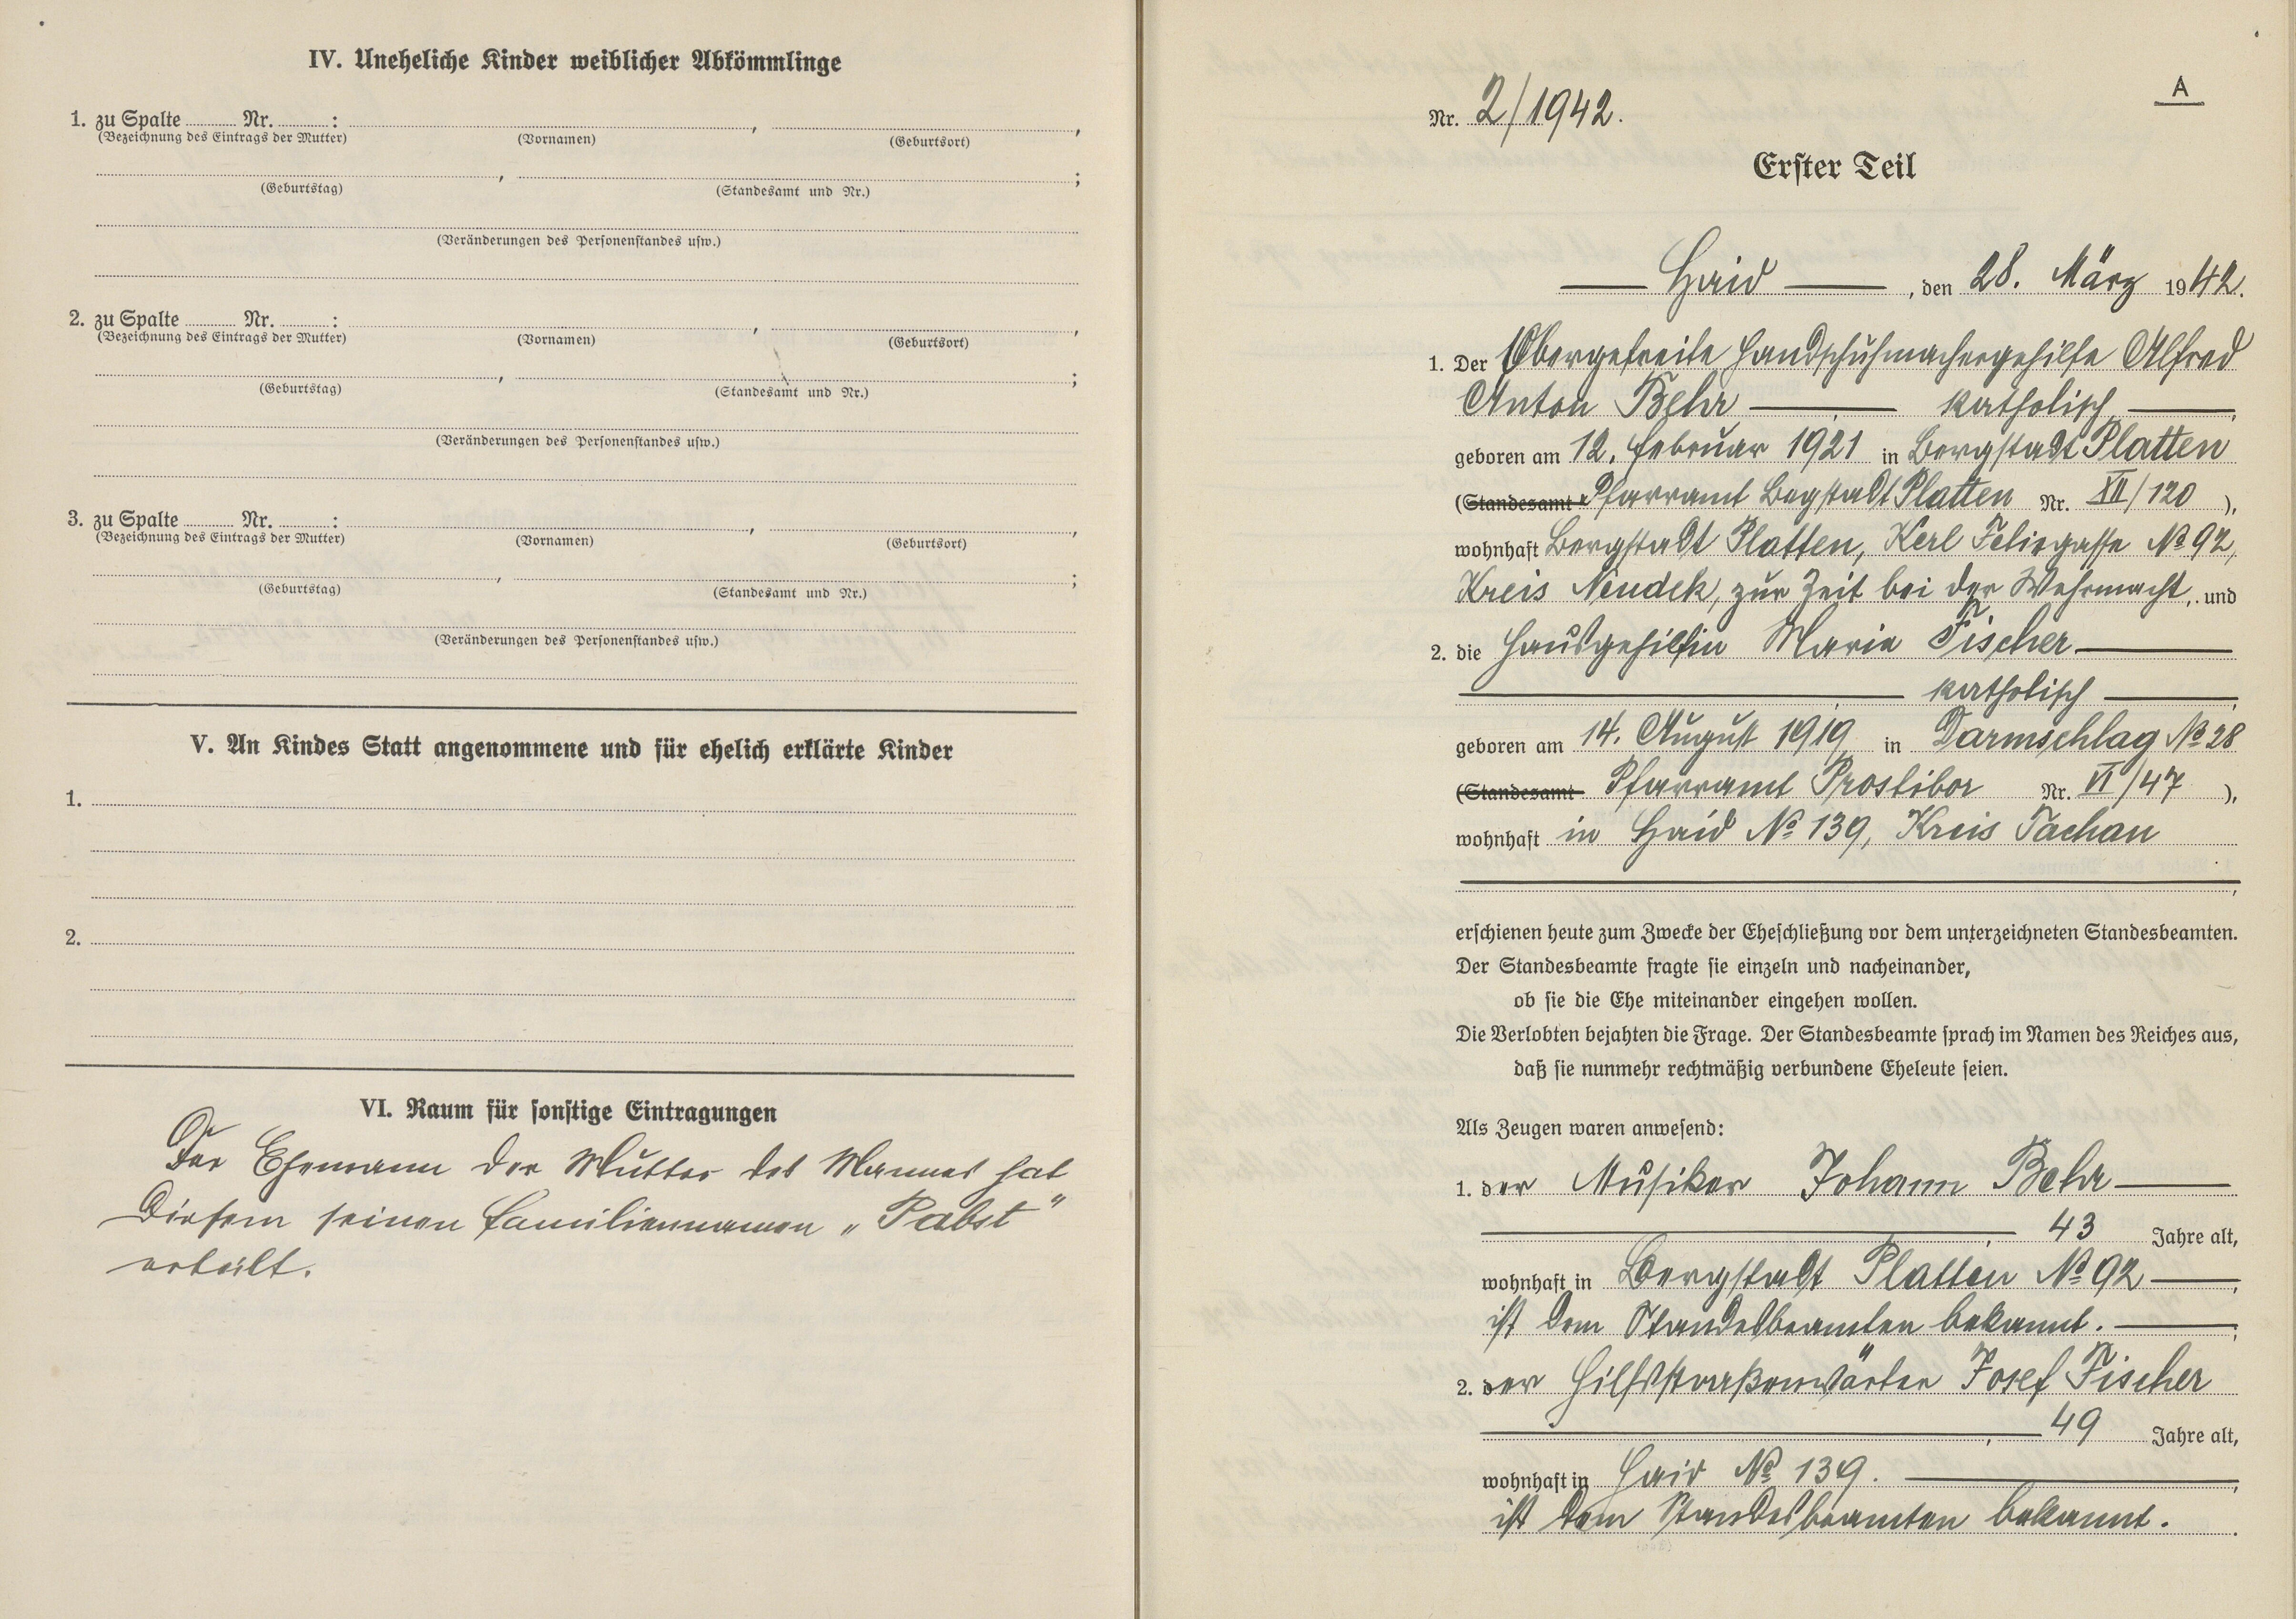 IV. Uneheliche Kinder weiblicher Abkömmlinge
1. zu Spalte ........ Nr. ........ : , ,
(Bezeichnung des Eintrags der Mutter) (Vornamen) (Geburtsort)
, ;
(Geburtstag) (Standesamt und Nr.)
(Veränderungen des Personenstandes usw.)
2. zu Spalte ........ Nr. ........ : , ,
(Bezeichnung des Eintrags der Mutter) (Vornamen) (Geburtsort)
, ;
(Geburtstag) (Standesamt und Nr.)
(Veränderungen des Personenstandes usw.)
3. zu Spalte ........ Nr. ........ : , ,
(Bezeichnung des Eintrags der Mutter) (Vornamen) (Geburtsort)
, ;
(Geburtstag) (Standesamt und Nr.)
(Veränderungen des Personenstandes usw.)
V. An Kindes Statt angenommene und für ehelich erklärte Kinder
1.
2.
VI. Raum für sonstige Eintragungen
Der Ehemann der Mutter des Mannes hat
diesem seinen Familiennamen „Pabst"
erteilt.
A
Nr. 2/1942.
Erster Teil
Haid, den 28. März 1942.
1. Der Obergefreite Handschuhmachergehilfe Alfred
Anton Behr katholisch,
geboren am 12. Februar 1921 in Bergstadt Platten
(Standesamt Pfarramt Begstadt Platten Nr. XII/120),
wohnhaft Bergstadt Platten, Kerl Feliegasse No 92,
Kreis Neudek, zur Zeit bei der Wehrmacht, und
2. die Hausgehilfin Maria Fischer
katholisch,
geboren am 14. August 1919 in Darmschlag No 28
(Standesamt Pfarramt Prostibor Nr. VI/47),
wohnhaft in Haid No 139, Kreis Tachau
erschienen heute zum Zwecke der Eheschließung vor dem unterzeichneten Standesbeamten.
Der Standesbeamte fragte sie einzeln und nacheinander,
ob sie die Ehe miteinander eingehen wollen.
Die Verlobten bejahten die Frage. Der Standesbeamte sprach im Namen des Reiches aus,
daß sie nunmehr rechtmäßig verbundene Eheleute seien.
Als Zeugen waren anwesend:
1. der Musiker Johann Behr
, 43 Jahre alt,
wohnhaft in Bergstadt Platten No 92,
ist dem Standesbeamten bekannt.;
2. der Hilfsstraßenwärter Josef Fischer
, 49 Jahre alt,
wohnhaft in Haid No 139.,
ist dem Standesbeamten bekannt.